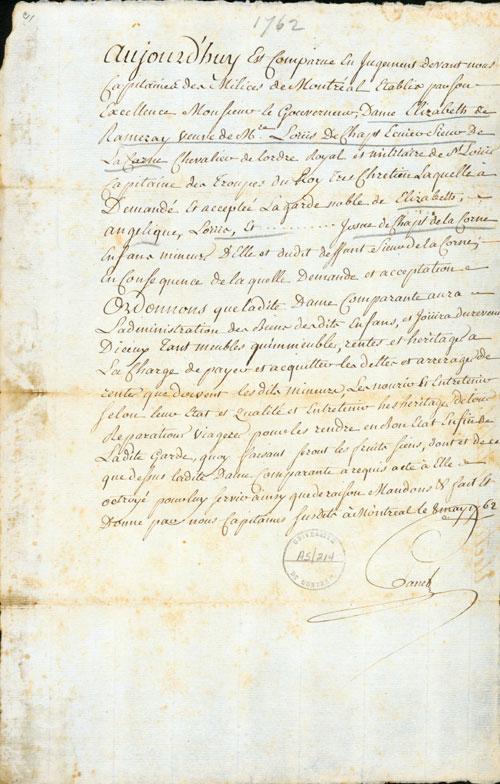 1762
aujourd'huy Est Comparue En Jugement devant nous
Capitaines des Milices de Montréal Etablis par son
Excellence Monsieur le Gouverneur, Dame Elizabeth de
Ramezay veuve de Mre Loüis De Chapt Ecuier Sieur De
La Corne Chevalier de lordre Royal et militaire de St Loüis
Capitaine des Troupes du Roy tres Chretien Laquelle a
Demandé et acceptée La garde noble de Elizabeth,
angelique, Loüis, et Josue de Chapt de la Corne
Enfans mineurs d'Elle et dudit deffunt Sieur de la Corne,
En Consequence de la quelle Demande et acceptation
Ordonnons que ladite Dame Comparante aura
Ladministration des Biens desdits Enfans, et Joüira du revenu
Diceux tant meubles qu'immeubles, rentes et heritages a
La Charge de payer et acquitter les dettes et arrerages de
rentes que doivent lesdits mineurs, Les nourir Et Entretenir
Selon leur Etat et qualité et Entretenir les heritages de toutes
Reparations viageres pour les rendre en bon Etat Enfin de
Ladite Garde, quoy faisant seront les fruits siens, dont et de ce
que dessus ladite Dame Comparante a requis acte a Elle
octroyé pour luy servir ainsy que de raison Mandons & fait Et
Donné par nous Capitaines susdits à Montréal le 8 may 1762
Panet
UNIVERSITÉ
A5/214
DE MONTRÉAL